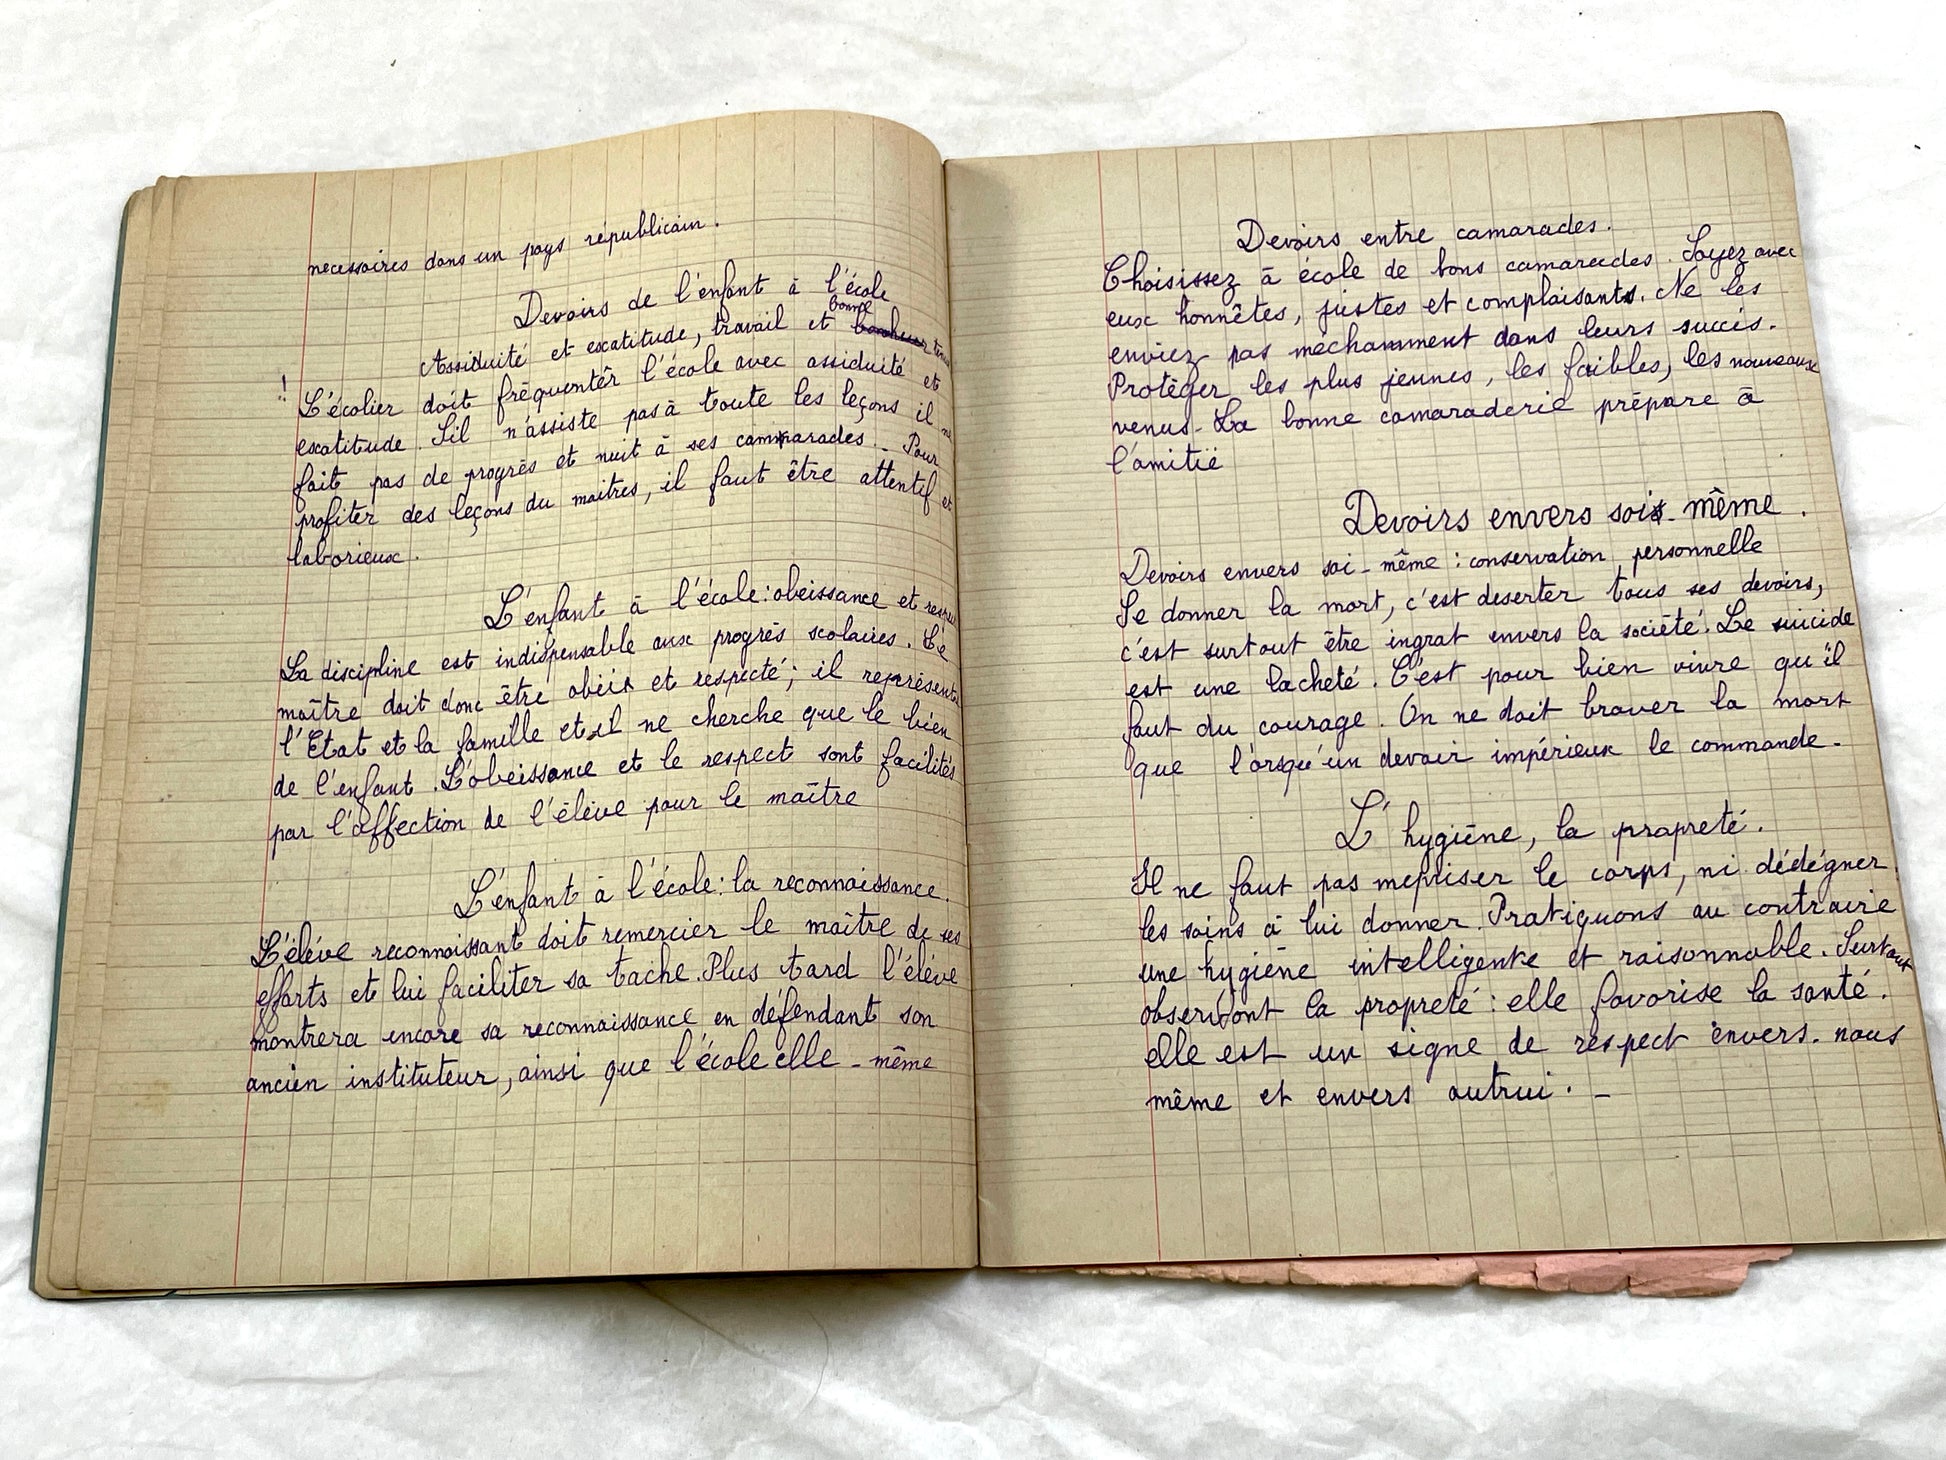 necessaires dans un pays républicain.
Devoirs de l'enfant à l'école
Assiduité et escatitude, travail et bonne tenue
! L'écolier doit fréquenter l'école avec assiduité et
escatitude. S'il n'assiste pas à toute les leçons il ne
fait pas de progrès et nuit à ses camarades. _ Pour
profiter des leçons du maitres, il faut être attentif et
laborieux.
L'enfant à l'école : obeissance et respect
La discipline est indispensable aux progrès scolaires. Le
maître doit donc être obéir et respecté ; il représente
l'Etat et la famille et il ne cherche que le bien
de l'enfant. L'obeissance et le respect sont facilités
par l'affection de l'élève pour le maître
L'enfant à l'école : la reconnaissance.
L'éléve reconnaissant doit remercier le maître de ses
efforts et lui faciliter sa tache. Plus tard l'éléve
montrera encore sa reconnaissance en défendant son
ancien instituteur, ainsi que l'école elle-même
Devoirs entre camarades.
Choisissez à école de bons camarades. Soyez avec
eux honnêtes, justes et complaisants. Ne les
enviez pas mechamment dans leurs succès.
Protéger les plus jeunes, les faibles, les nouveaux
venus. La bonne camaraderie prépare à
l'amitié
Devoirs envers soi-même.
Devoirs envers soi-même : conservation personnelle
Se donner la mort, c'est deserter tous ses devoirs,
c'est surtout être ingrat envers la société. Le suicide
est une lacheté. C'est pour bien vivre qu'il
faut du courage. On ne doit braver la mort
que l'orsqu'un devoir impérieux le commande.
L'hygiène, la propreté.
Il ne faut pas mepriser le corps, ni dédégner
les soins à lui donner. Pratiquons au contraire
une hygiène intelligente et raisonnable. Surtout
observont la propreté : elle favorise la santé.
elle est un signe de respect envers-nous
même et envers autrui. _